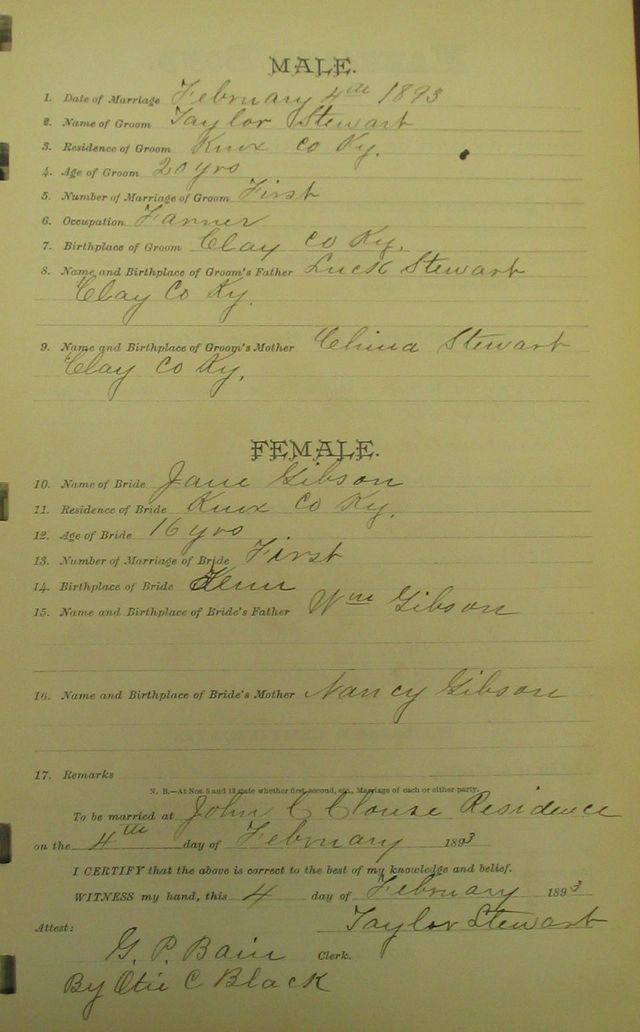 MALE.
1. Date of Marriage February 4th 1893
2. Name of Groom Taylor Stewart
3. Residence of Groom Knox Co Ky.
4. Age of Groom 20 yrs
5. Number of Marriage of Groom First
6. Occupation Farmer
7. Birthplace of Groom Clay Co Ky.
8. Name and Birthplace of Groom's Father Luck Stewart
Clay Co Ky.
9. Name and Birthplace of Groom's Mother Stewart
Clay Co Ky.
FEMALE.
10. Name of Bride Jane Gibson
11. Residence of Bride Knox Co Ky.
12. Age of Bride 16 yrs
13. Number of Marriage of Bride First
14. Birthplace of Bride Tenn
15. Name and Birthplace of Bride's Father Wm Gibson
16. Name and Birthplace of Bride's Mother Nancy Gibson
17. Remarks
N. B.—At Nos. 5 and 13 state whether first, second, etc., Marriage of each or either party.
To be married at John C Clouse Residence
on the 4th day of February 1893
I CERTIFY that the above is correct to the best of my knowledge and belief.
WITNESS my hand, this 4 day of February 1893
Taylor Stewart
Attest:
G. P. Bain Clerk.
By C Black